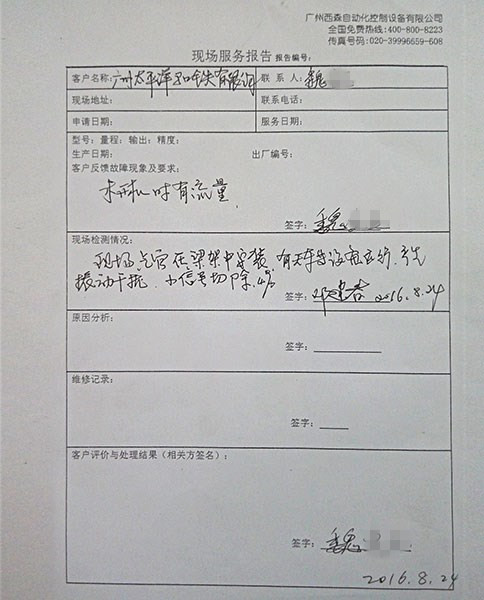 广州西森自动化控制设备有限公司
全国免费热线:400-800-8223
传真号码:020-39996659-608
现场服务报告 报告编号:
客户名称: 广州太平洋马口铁有限公司 联 系 人: 魏
现场地址: 联系电话:
申请日期: 服务日期:
型号: 量程: 输出: 精度:
生产日期: 出厂编号:
客户反馈故障现象及要求:
未开机时有流量
签字: 魏
现场检测情况:
现场气管在梁架中安装 有天车等设备运行,
振动干扰. 小信号切除.4%
签字: 邓 2016.8.24
原因分析:
签字:
维修记录:
签字:
客户评价与处理结果（相关方签名）:
签字: 魏
2016.8.24